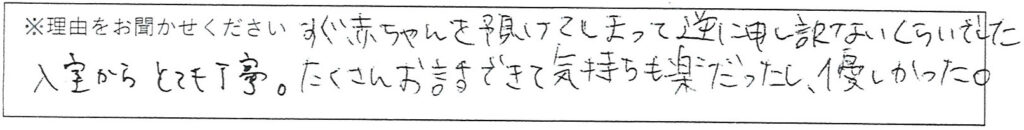 ※理由をお聞かせください すぐ赤ちゃんを預けてしまって逆に申し訳ないくらいでした
入室からとても丁寧。たくさんお話できて気持ちも楽だったし、優しかった。